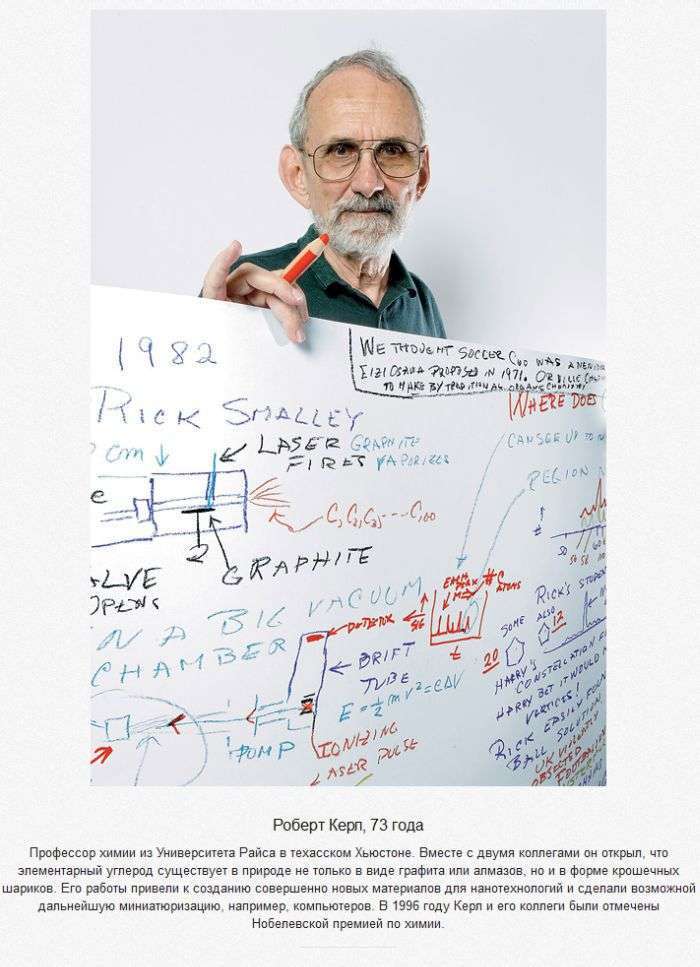 1982
WE THOUGHT SOCCER C60 WAS A NEW
EIJI OSAWA PROPOSED IN 1971. ORVILLE
TO MAKE BY TRADITIONAL ORGANIC CHEMISTRY
RICK SMALLEY
WHERE DOES
cm
LASER GRAPHITE
FIRES VAPORIZES
CAN SEE UP TO
REGION
C, C2, C3, --- C100
GRAPHITE
VALVE
OPENS
IN A BIG VACUUM
CHAMBER
DETECTOR
EACH
PEAK
# C
ATOMS
DRIFT
TUBE
E = ½ mv² = eΔV
PUMP
IONIZING
LASER PULSE
t
50
RICK'S STUDENT
SOME
ALSO
12
20
HARRY'S
CONSTELLATION
HARRY BET IT WOULD
VERTICES!
RICK EASILY FOUND
BALL SOLUTION
Роберт Керл, 73 года
Профессор химии из Университета Райса в техасском Хьюстоне. Вместе с двумя коллегами он открыл, что
элементарный углерод существует в природе не только в виде графита или алмазов, но и в форме крошечных
шариков. Его работы привели к созданию совершенно новых материалов для нанотехнологий и сделали возможной
дальнейшую миниатюризацию, например, компьютеров. В 1996 году Керл и его коллеги были отмечены
Нобелевской премией по химии.